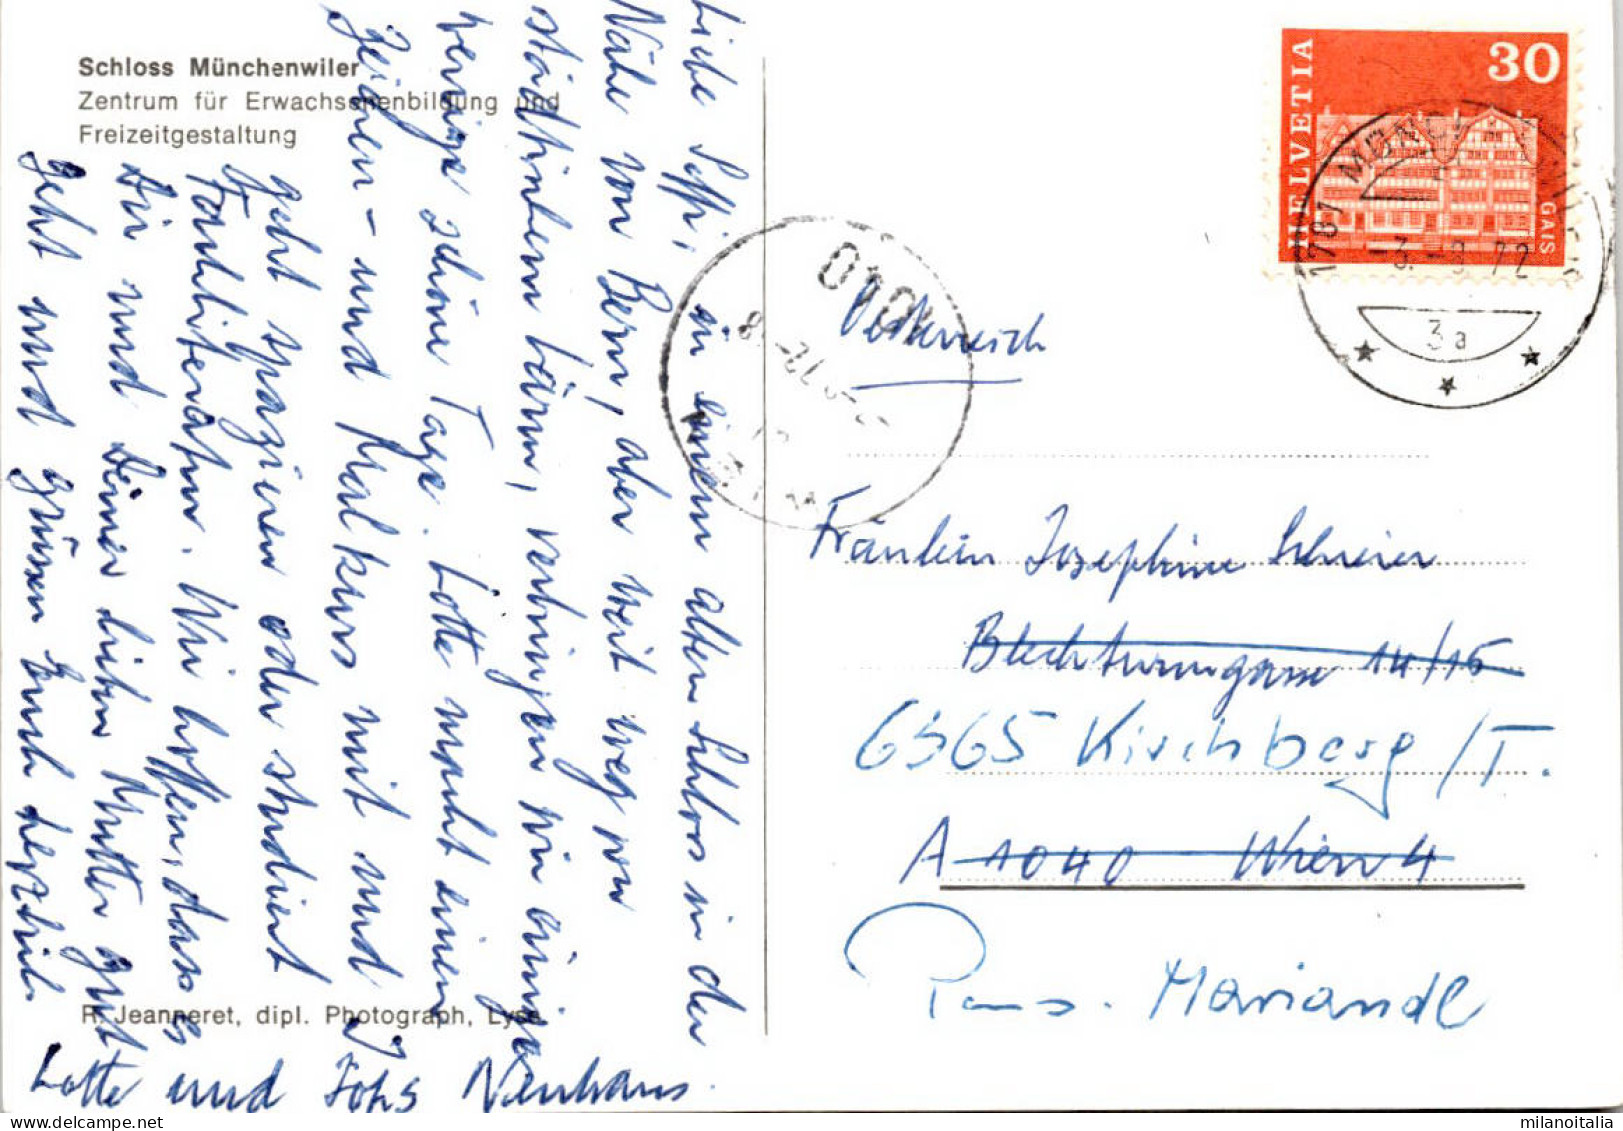 Schloss Münchenwiler
Zentrum für Erwachsenenbildung und
Freizeitgestaltung
Liebe Seffi, in einem alten Schloss in der
Nähe von Bern, aber weit weg von
städtischem Lärm, verbringen wir einige
schöne Tage. Lotte macht einen
Zeichen- und Malkurs mit und
geht spazieren oder studiert
Fachliteratur. Wir hoffen, dass es
Dir und Deiner lieben Mutter gut
geht und grüssen Euch herzlich
Lotte und Neuhaus.
R. Jeanneret, dipl. Photograph, Lyss
HELVETIA
30
GAIS
1781 MÜNCHENWILER
-3.-8.72
3a
1010
Oesterreich
Fräulein Josephine Schreier
Blechturmgasse 14/15
6365 Kirchberg /T.
A 1040 Wien 4
Pens. Mariandl
milanoitalia